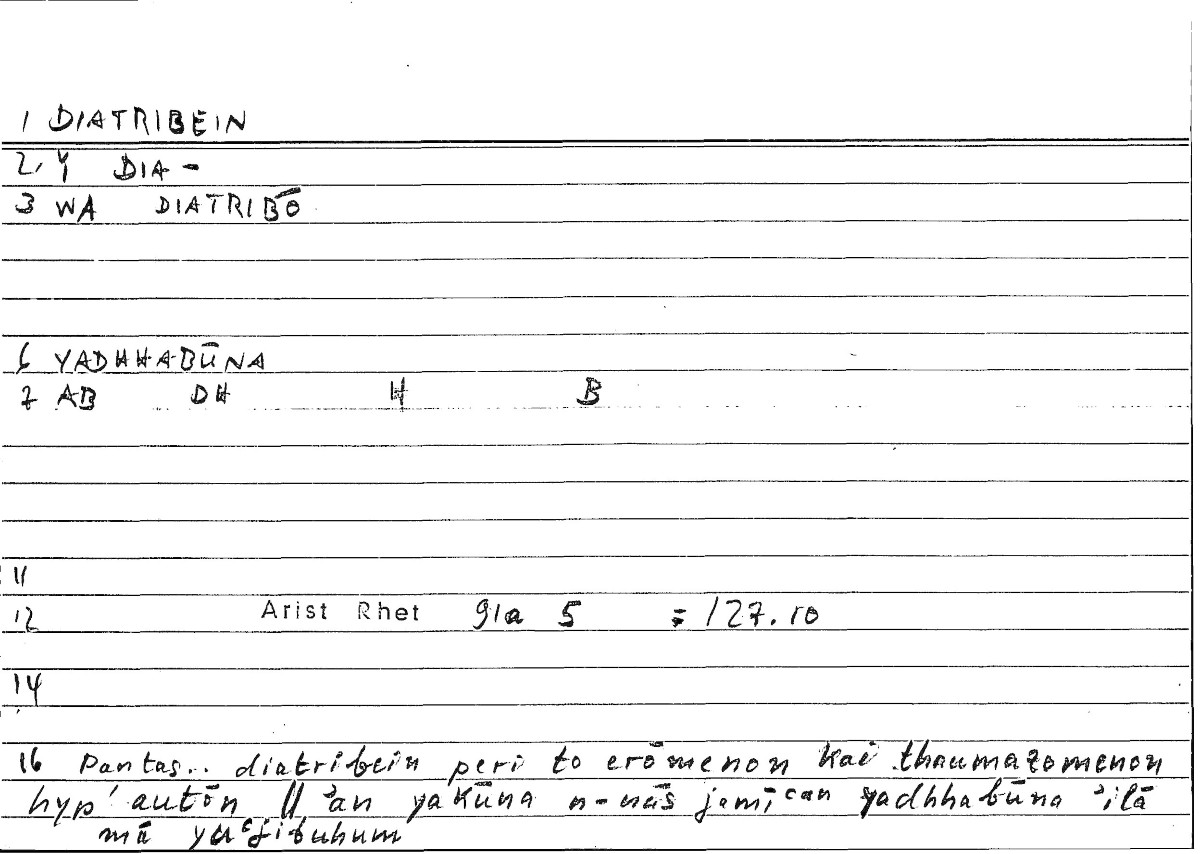 1 DIATRIBEIN
2, Y DIA-
3 WA DIATRIBŌ
6 YADHHABŪNA
7 AB DH H B
11
12 Arist Rhet 91a 5 = 127.10
14
16 Pantas.. diatribein peri to erōmenon kai thaumazomenon
hyp' autōn || ʾan yakūna n-nās jamīʿan yadhhabūna ʾilā
mā yuʿjibuhum